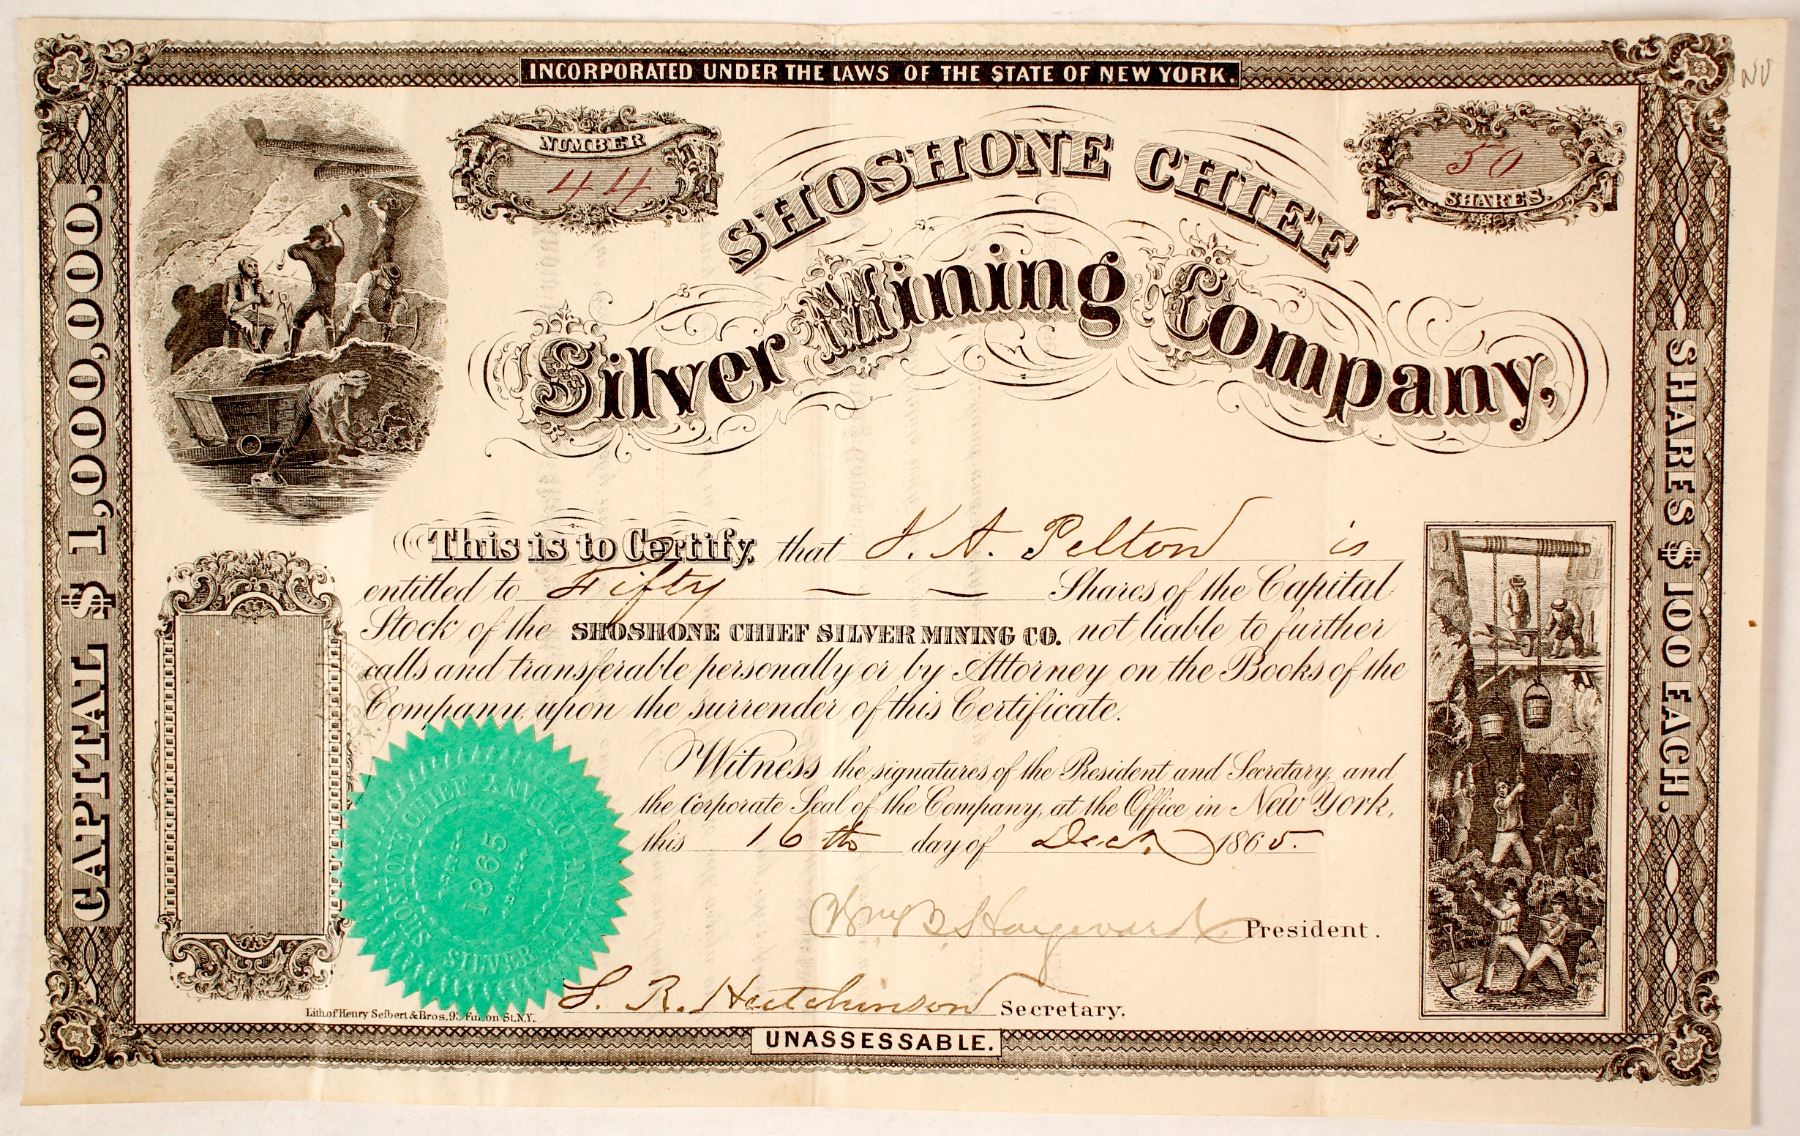 INCORPORATED UNDER THE LAWS OF THE STATE OF NEW YORK.
NV
NUMBER
44
50
SHARES.
SHOSHONE CHIEF
Silver Mining Company,
CAPITAL $1,000,000.
SHARES $100 EACH.
This is to Certify, that J. A. Pelton is
entitled to Fifty — — Shares of the Capital
Stock of the SHOSHONE CHIEF SILVER MINING CO. not liable to further
calls and transferable personally or by Attorney on the Books of the
Company, upon the surrender of this Certificate.
Witness the signatures of the President and Secretary, and
the Corporate Seal of the Company, at the Office in New York,
this 16th day of Dec. 1865.
1865
SILVER
Wm B. Haywards President.
S. R. Hutchinson Secretary.
Lith. of Henry Seibert & Bros. 93 Fulton St. N.Y.
UNASSESSABLE.